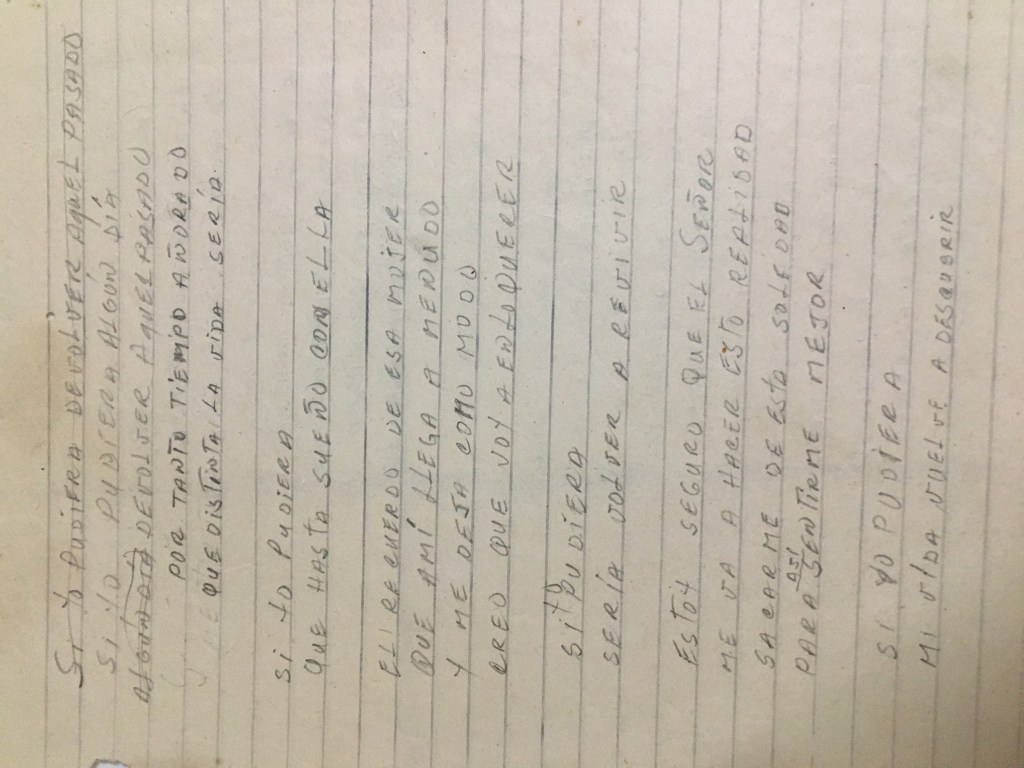 Si yo PUDIERA DEVOLVER AQUEL PASADO
Si YO PUDIERA ALGÚN DÍA
ALGUN DIA DEVOLVER AQUEL PASADO
POR TANTO TIEMPO AÑORADO
QUE DISTINTA LA VIDA SERÍA.
Si YO PUDIERA
QUE HASTA SUEÑO CON ELLA
EL RECUERDO DE ESA MUJER
QUE A MÍ LLEGA A MENUDO
Y ME DEJA COMO MUDO
CREO QUE VOY A ENLOQUERER
Si YO PUDIERA
SERÍA VOLVER A REVIVIR
ESTOY SEGURO QUE EL SEÑOR
ME VA A HACER ESTO REALIDAD
SACARME DE ESTA SOLEDAD
PARA ASÍ SENTIRME MEJOR
SI YO PUDIERA
MI VIDA VUELVE A DESCUBRIR